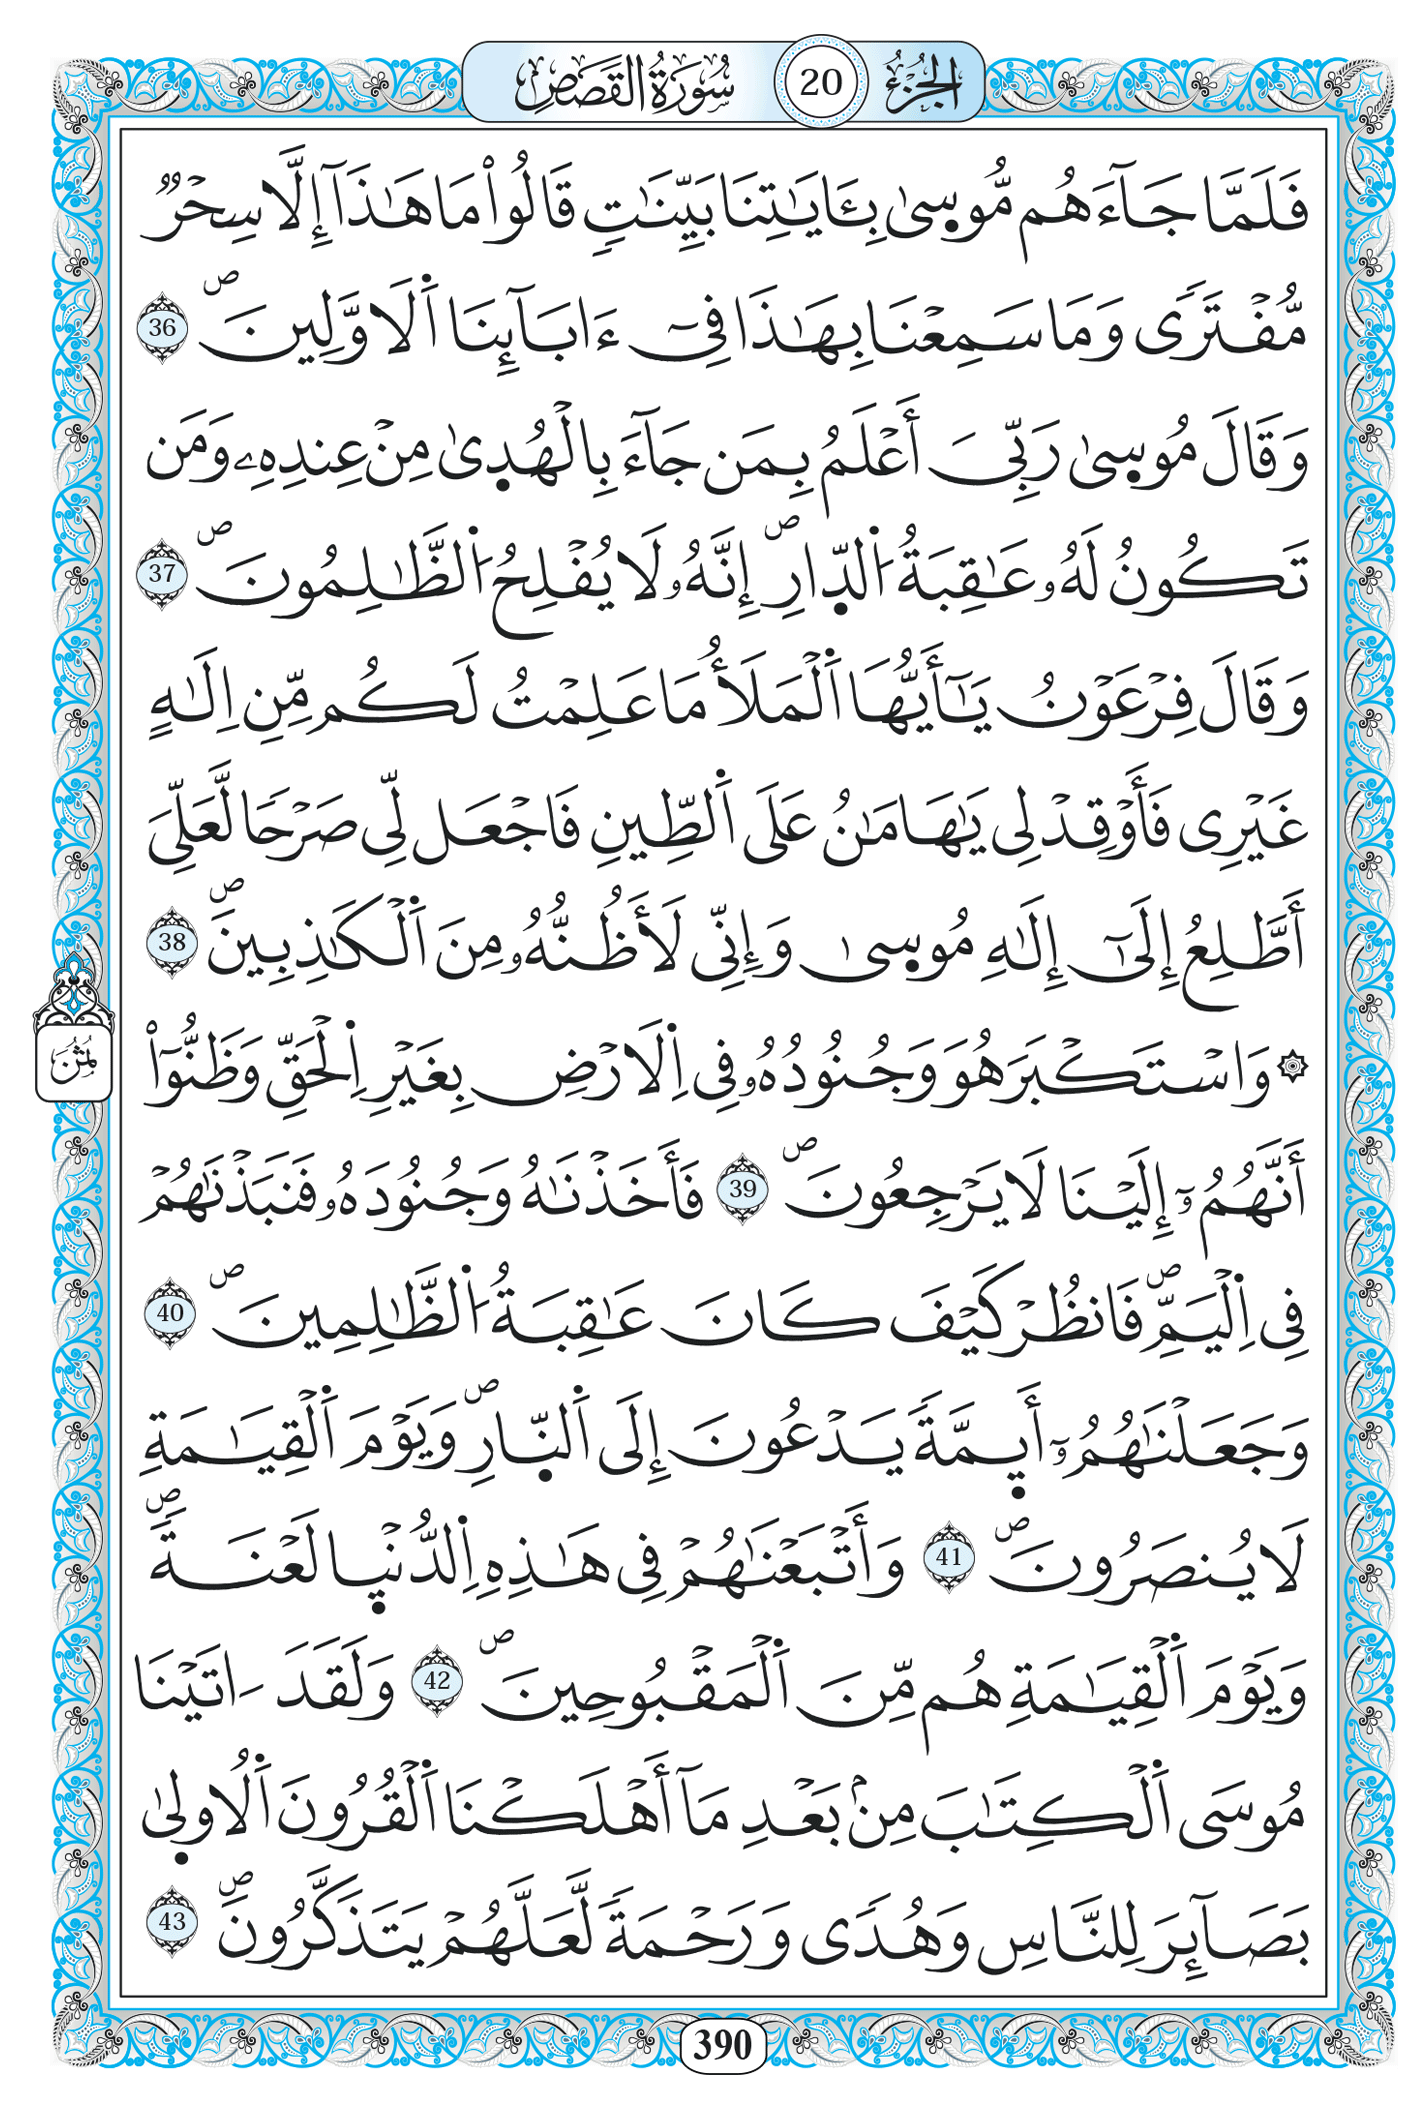 الجزء 20 سورة القصص
فَلَمَّا جَآءَهُم مُّوسىٰ بِـَٔايَٰتِنَا بَيِّنَٰتٍ قَالُواْ مَا هَٰذَآ إِلَّا سِحْرٌ
مُّفْتَرًى وَمَا سَمِعْنَا بِهَٰذَا فِىٓ ءَابَآئِنَا اَ۬لَاوَّلِينَۖ 36
وَقَالَ مُوسىٰ رَبِّىَ أَعْلَمُ بِمَن جَآءَ بِالْهُدىٰ مِنْ عِندِهِۦ وَمَن
تَكُونُ لَهُۥ عَٰقِبَةُ اُ۬لدّ۪ارِۖ إِنَّهُۥ لَا يُفْلِحُ اُ۬لظَّٰلِمُونَۖ 37
وَقَالَ فِرْعَوْنُ يَٰٓأَيُّهَا اَ۬لْمَلَأُ مَا عَلِمْتُ لَكُم مِّنِ اِلَٰهٍ
غَيْرِى فَأَوْقِدْ لِى يَٰهَامَٰنُ عَلَى اَ۬لطِّينِ فَاجْعَل لِّى صَرْحًا لَّعَلِّىَ
أَطَّلِعُ إِلَىٰٓ إِلَٰهِ مُوسىٰ وَإِنِّى لَأَظُنُّهُۥ مِنَ اَ۬لْكَٰذِبِينَۖ 38
۞ وَاسْتَكْبَرَ هُوَ وَجُنُودُهُۥ فِى اِ۬لَارْضِ بِغَيْرِ اِ۬لْحَقِّ وَظَنُّوٓاْ
أَنَّهُمُۥٓ إِلَيْنَا لَا يَرْجِعُونَۖ 39 فَأَخَذْنَٰهُ وَجُنُودَهُۥ فَنَبَذْنَٰهُمْ
فِى اِ۬لْيَمِّۖ فَانظُرْ كَيْفَ كَانَ عَٰقِبَةُ اُ۬لظَّٰلِمِينَۖ 40
وَجَعَلْنَٰهُمُۥٓ أَي۪مَّةً يَدْعُونَ إِلَى اَ۬لنّ۪ارِۖ وَيَوْمَ اَ۬لْقِيَٰمَةِ
لَا يُنصَرُونَۖ 41 وَأَتْبَعْنَٰهُمْ فِى هَٰذِهِ اِ۬لدُّنْي۪ا لَعْنَةًۖ
وَيَوْمَ اَ۬لْقِيَٰمَةِ هُم مِّنَ اَ۬لْمَقْبُوحِينَۖ 42 وَلَقَدَ ـ اتَيْنَا
مُوسَى اَ۬لْكِتَٰبَ مِنۢ بَعْدِ مَآ أَهْلَكْنَا اَ۬لْقُرُونَ اَ۬لُاولىٰ
بَصَآئِرَ لِلنَّاسِ وَهُدًى وَرَحْمَةً لَّعَلَّهُمْ يَتَذَكَّرُونَۖ 43
ثُمُنَ
390